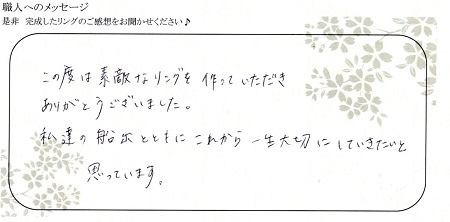 職人へのメッセージ
是非 完成したリングのご感想をお聞かせください♪
この度は素敵なリングを作っていただき
ありがとうございました。
私達の船出とともにこれから一生大切にしていきたいと
思っています。